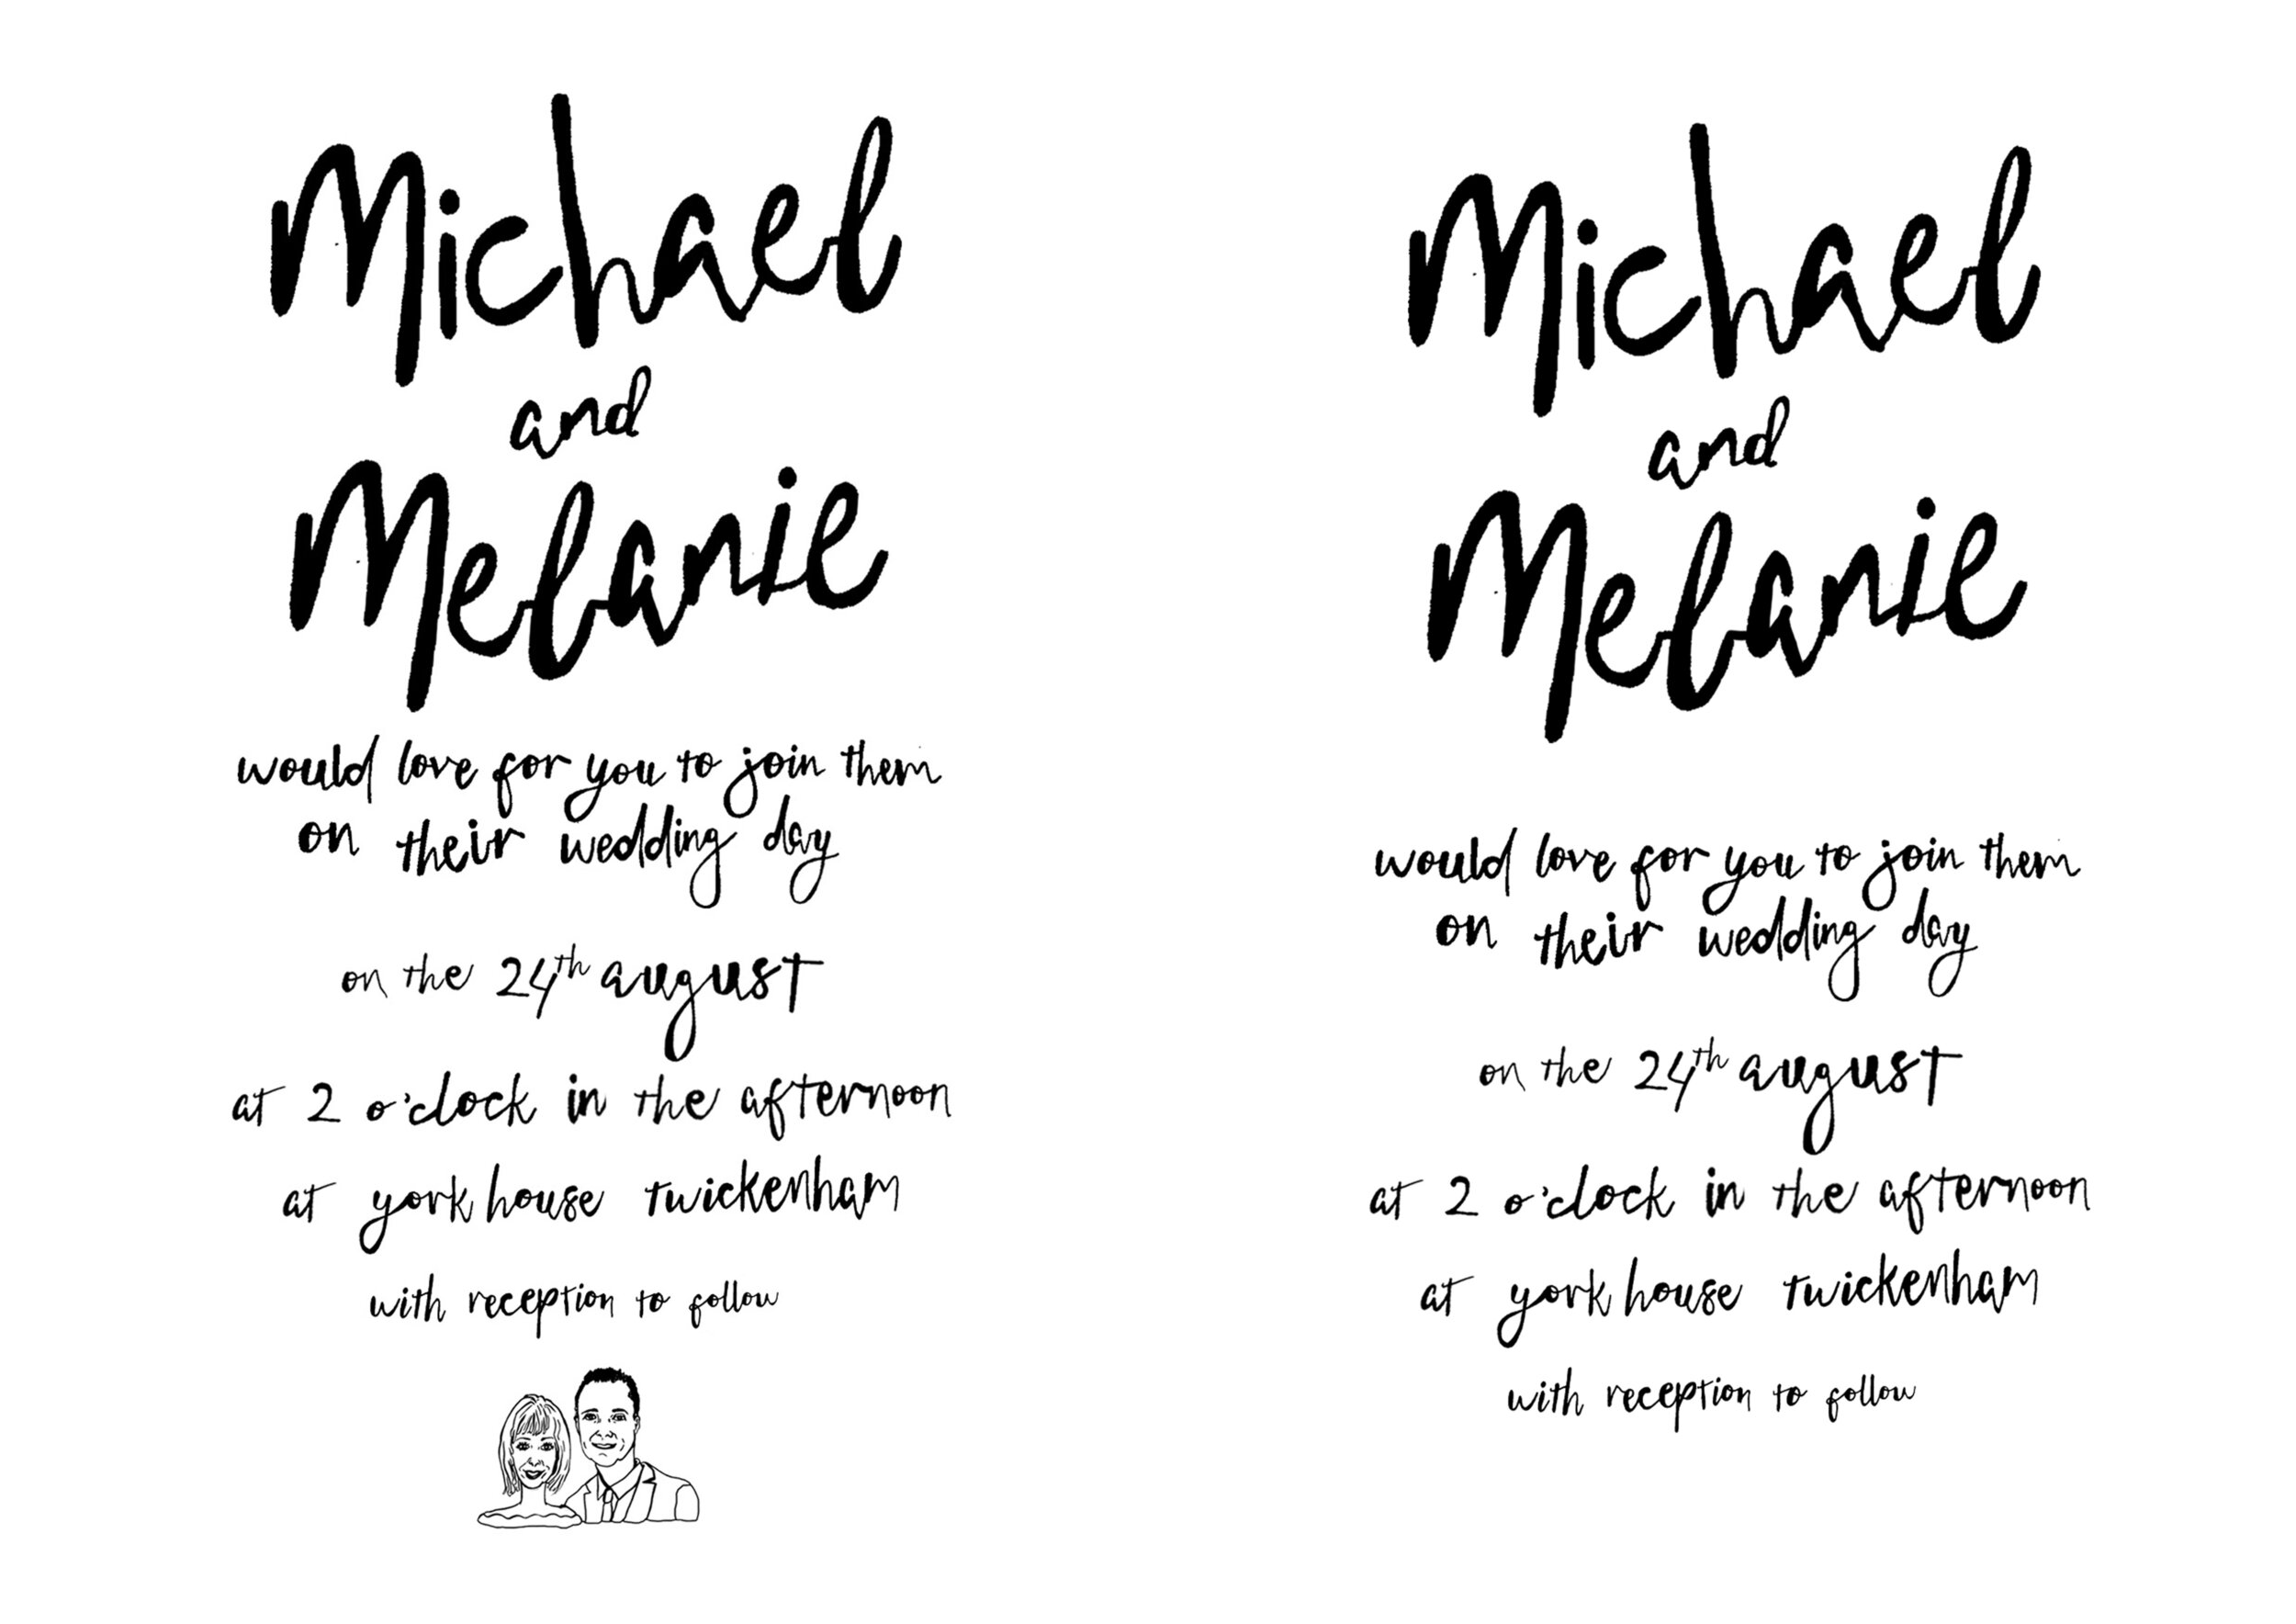 Michael
and
Melanie
would love for you to join them
on their wedding day
on the 24th august
at 2 o'clock in the afternoon
at york house twickenham
with reception to follow
Michael
and
Melanie
would love for you to join them
on their wedding day
on the 24th august
at 2 o'clock in the afternoon
at york house twickenham
with reception to follow